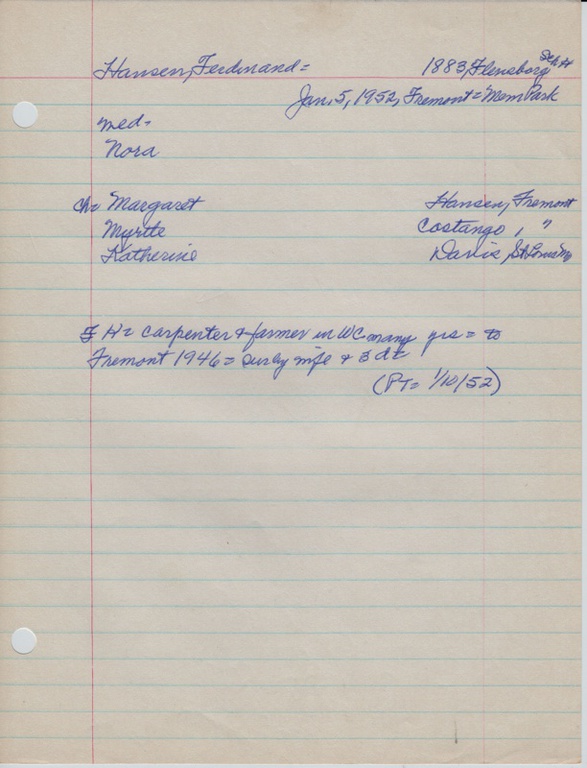 Hansen, Ferdinand = 1883, Flensborg
Jan. 5, 1952, Fremont = Mem Park
med =
Nora
ch = Margaret Hansen, Fremont
Myrtle Costango, "
Katherine Davis, St Louis Mo
F H = carpenter & farmer in WC many yrs = to
Fremont 1946 = surv by wife & 3 dt
(PT = 1/10/52)